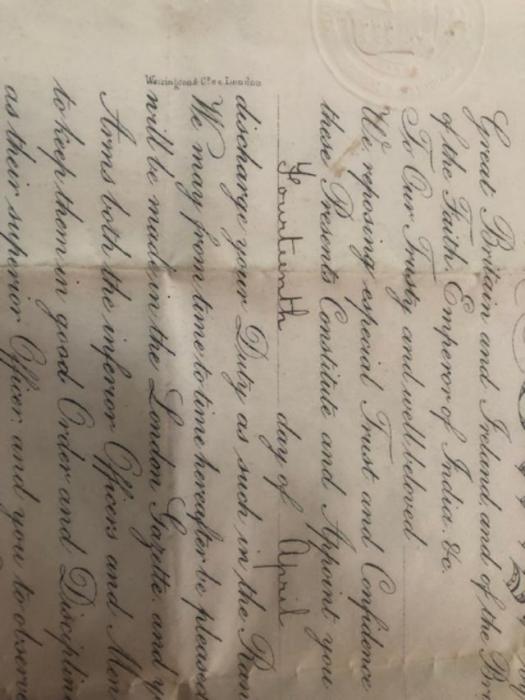 Great Britain and Ireland, and of the B
of the Faith, Emperor of India, &c.
To Our Trusty and well beloved
We, reposing especial Trust and Confidence
these Presents, Constitute and Appoint you
Fourteenth day of April
discharge your Duty as such in the Ran
We may from time to time hereafter be pleased
will be made in the London Gazette, and y
Arms both the inferior Officers and Men
to keep them in good Order and Disciplin
as their superior Officer, and you to observe